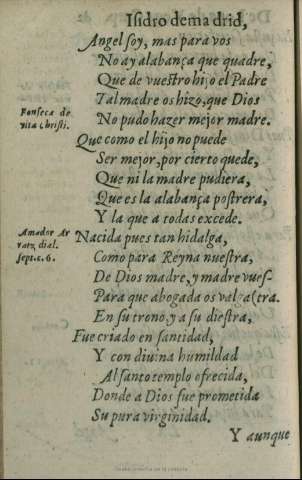 Isidro de madrid,
Angel soy, mas para vos
No ay alabança que quadre,
Que de vuestro hijo el Padre
Tal madre os hizo, que Dios
No pudo hazer mejor madre.
Fonseca de
vita Christi.
Que como el hijo no puede
Ser mejor, por cierto quede,
Que ni la madre pudiera,
Que es la alabança postrera,
Y la que a todas excede.
Amador Ar
raez, dial.
sept. c. 6.
Nacida pues tan hidalga,
Como para Reyna nuestra,
De Dios madre, y madre vues-
Para que abogada os valga (tra.
En su trono, y a su diestra,
Fue criado en santidad,
Y con diuina humildad
Al santo templo ofrecida,
Donde a Dios fue prometida
Su pura virginidad.
Y aunque